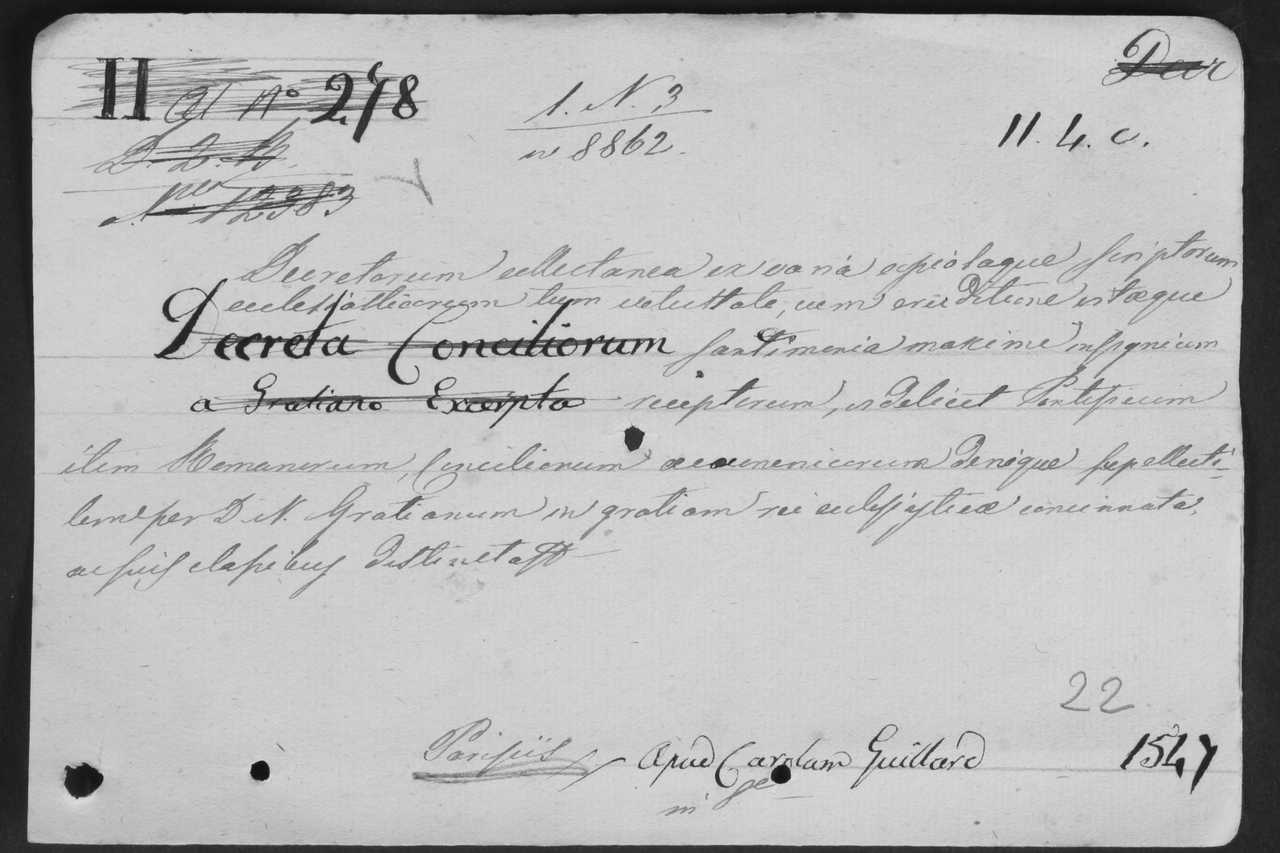 Decr
II at No 278
1. N. 3
n 8862.
II. 4. c.
D. L. B.
Nper 12383
Decretorum collectanea ex varia copiosaque scriptorum
ecclesiasticorum tum vetustate, cum eruditione vitaeque
Decreta Conciliorum sanctimonia maxime insignium
a Gratiano Excerpta receptorum, videlicet Pontificum
item Romanorum, Conciliorum oecumenicorum denique supellecti-
leme per D. N. Gratianum in gratiam rei ecclesiasticae concinnata,
ac suis classibus distincta
22
Parisiis apud Carolam Guillard 1547
in 8e